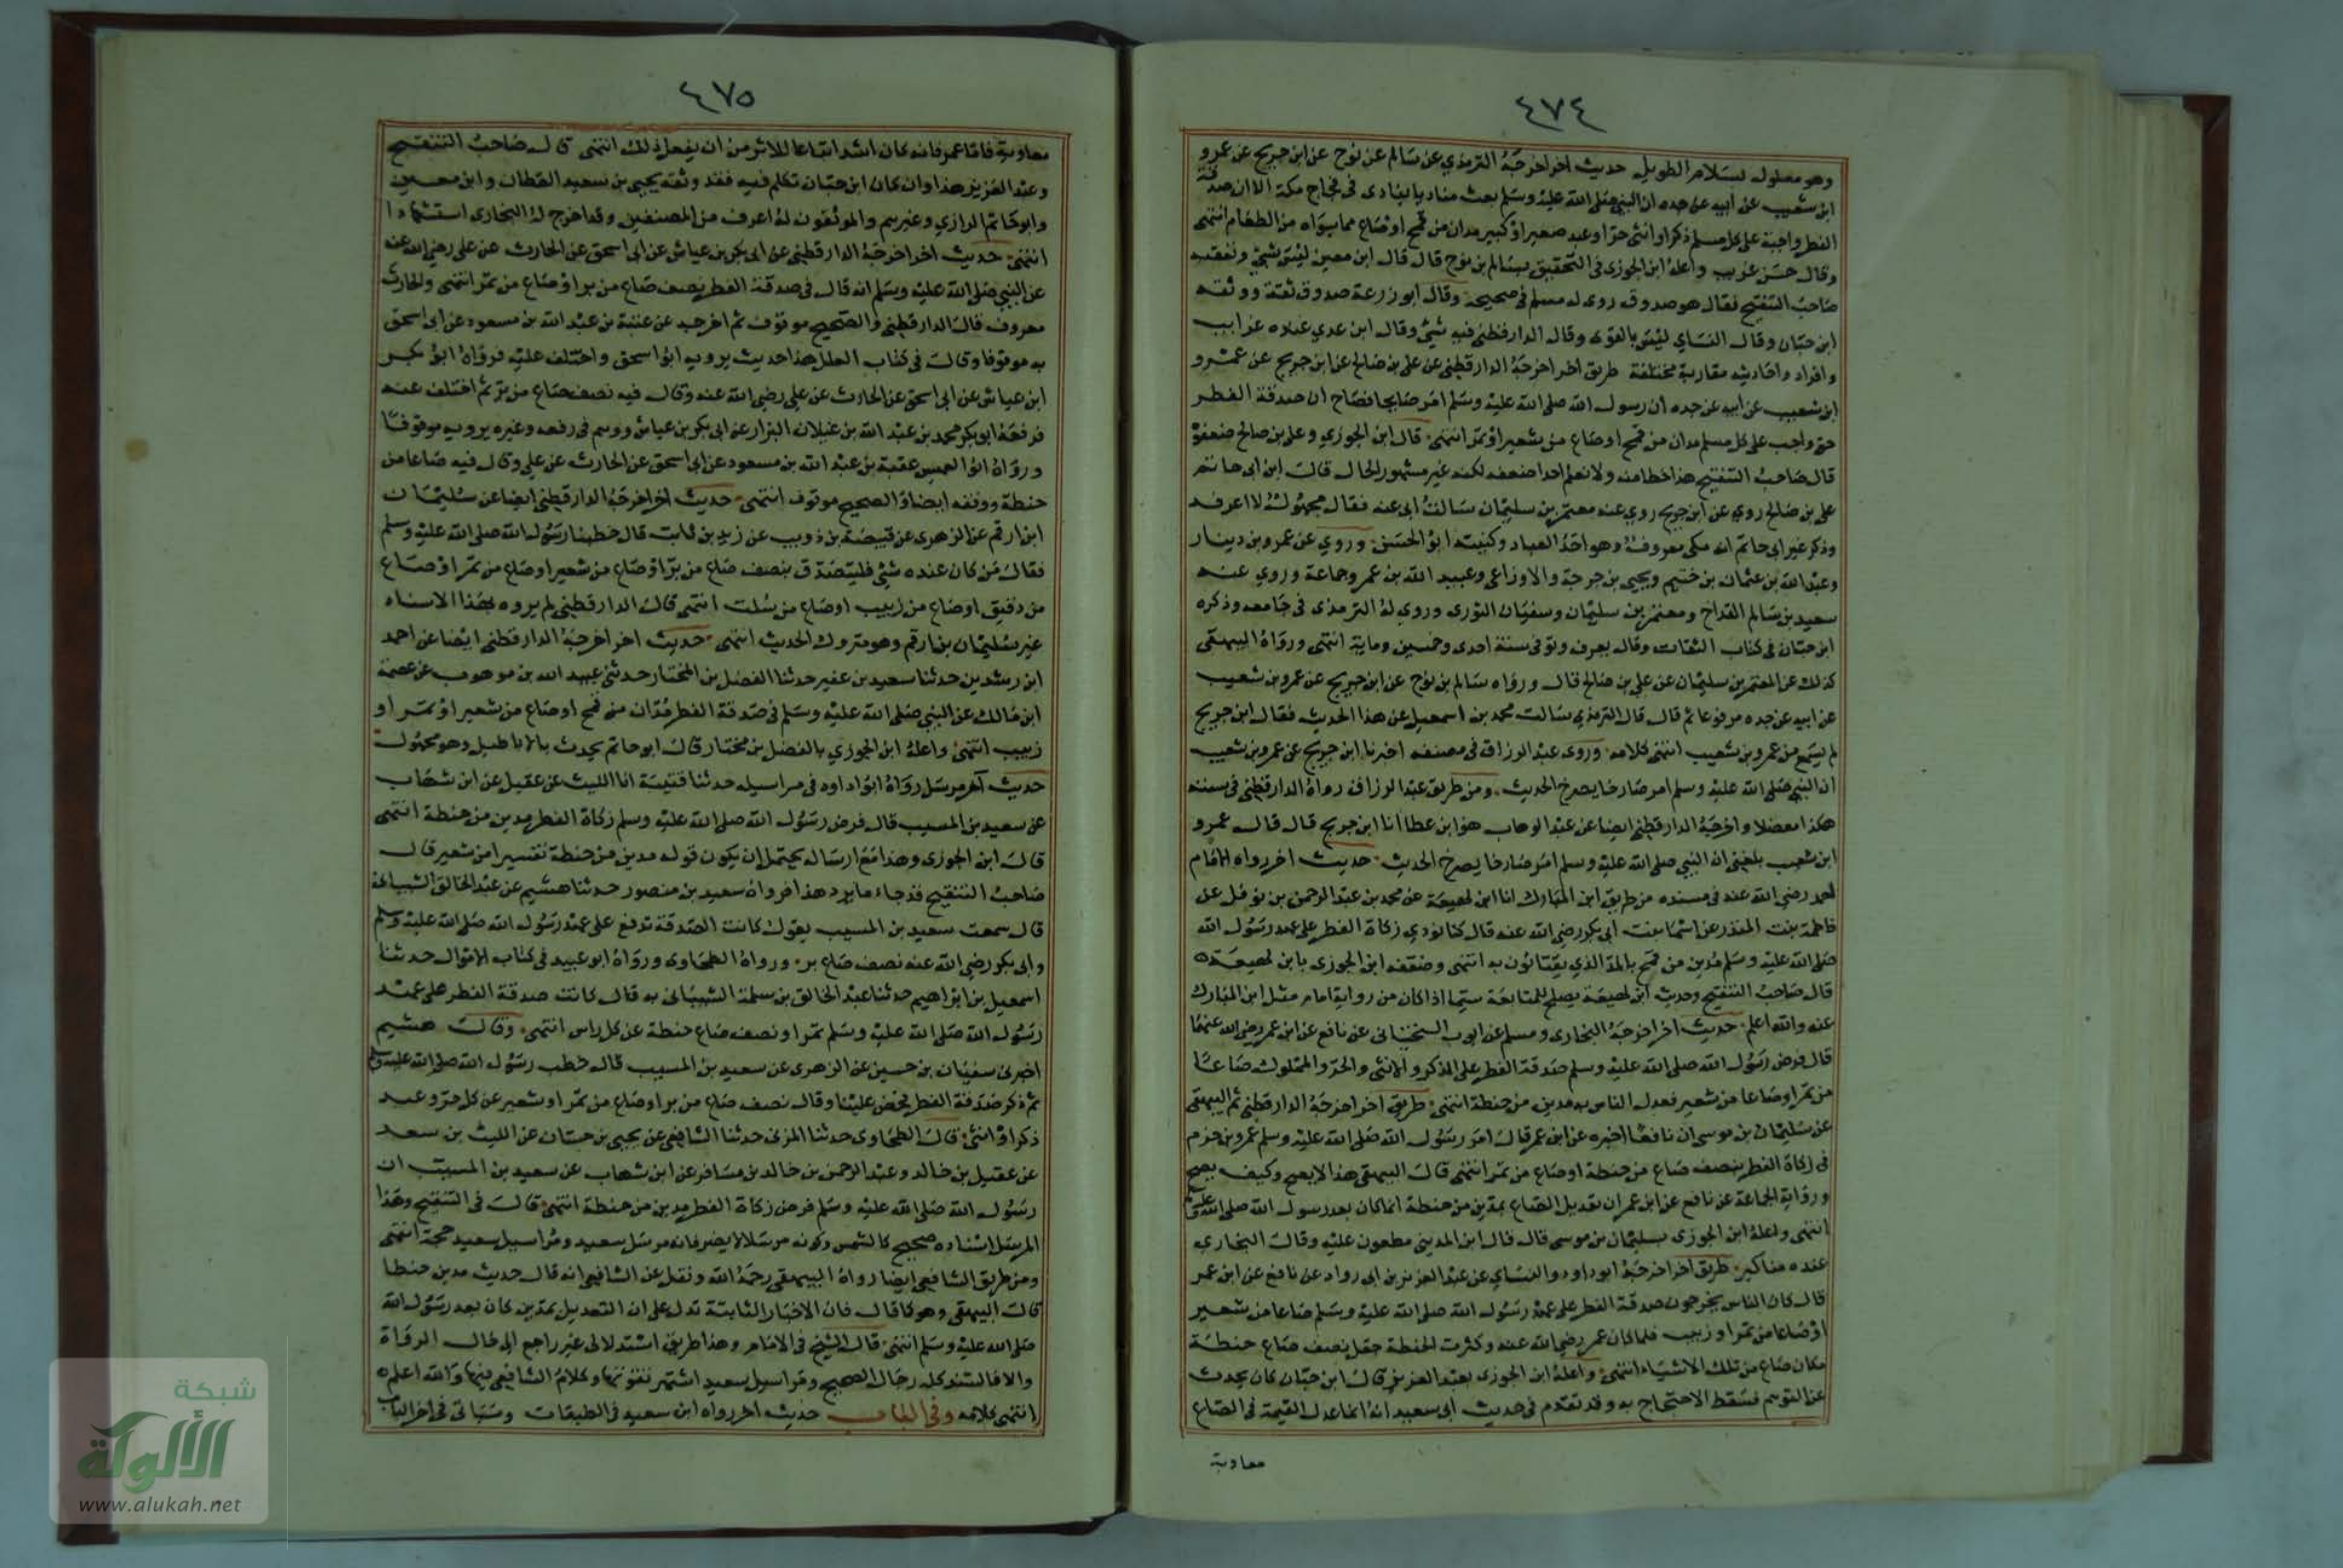 ٤٧٤
وهو معلول بسلام الطويل حديث اخر اخرجه الترمذي عن سالم عن نوح عن ابن جريج عن عمرو
ابن شعيب عن ابيه عن جده ان النبي صلى الله عليه وسلم بعث مناديا ينادى فى فجاج مكة الا ان صدقة
الفطر واجبة على كل مسلم ذكر او انثى حر او عبد صغير او كبير مدان من قمح او صاع مما سواه من الطعام انتهى
وقال حسن غريب واعله ابن الجوزى فى التحقيق بسالم بن نوح قال قال ابن معين ليس بشئ وتعقبه
صاحب التنقيح فقال هو صدوق روى له مسلم فى صحيحه وقال ابو زرعة صدوق ثقة ووثقه
ابن حبان وقال النساي ليس بالقوى وقال الدارقطنى فيه شئ وقال ابن عدي عنده غرايب
وافراد واحاديثه مقاربة مختلفة طريق اخر اخرجه الدارقطنى عن على بن صالح عن ابن جريج عن عمرو
ابن شعيب عن ابيه عن جده ان رسول الله صلى الله عليه وسلم امر صايحا فصاح ان صدقة الفطر
حق واجب على كل مسلم مدان من قمح او صاع من شعير او تمر انتهى قال ابن الجوزي وعلى بن صالح ضعفوه
قال صاحب التنقيح هذا خطا منه ولا نعلم احدا ضعفه لكنه غير مشهور الحال قال ابن ابى حاتم
على بن صالح روي عن ابن جريج روي عنه معتمر بن سليمان سالت ابى عنه فقال مجهول لا اعرفه
وذكر غير ابى حاتم انه مكى معروف وهو احد العباد وكنيته ابو الحسن وروي عن عمرو بن دينار
وعبد الله بن عثمان بن خثيم ويحيى بن جرجة والاوزاعى وعبيد الله بن عمر وجماعة وروي عنه
سعيد بن سالم القداح ومعتمر بن سليمان وسفيان الثورى وروي له الترمذى فى جامعه وذكره
ابن حبان فى كتاب الثقات وقال يعرف وتوفى سنة احدى وخمسين وماية انتهى ورواه البيهقى
كذلك عن المعتمر بن سليمان عن على بن صالح قال ورواه سالم بن نوح عن ابن جريج عن عمرو بن شعيب
عن ابيه عن جده مرفوعا ثم قال قال الترمذي سالت محمد بن اسمعيل عن هذا الحديث فقال ابن جريج
لم يسمع من عمرو بن شعيب انتهى كلامه وروى عبد الرزاق فى مصنفه اخبرنا ابن جريج عن عمرو بن شعيب
ان النبي صلى الله عليه وسلم امر صارخا يصرخ الحديث ومن طريق عبد الرزاق رواه الدارقطنى فى سننه
هكذا معضلا واخرجه الدارقطنى ايضا عن عبد الوهاب هو ابن عطا انا ابن جريج قال قال عمرو
ابن شعيب بلغنى ان النبي صلى الله عليه وسلم امر صارخا يصرخ الحديث حديث اخر رواه الامام
احمد رضي الله عنه فى مسنده من طريق ابن المبارك انا ابن لهيعة عن محمد بن عبد الرحمن بن نوفل عن
فاطمة بنت المنذر عن اسما بنت ابى بكر رضي الله عنه قال كنا نودي زكاة الفطر على عهد رسول الله
صلى الله عليه وسلم مدين من قمح بالمد الذي يقتاتون به انتهى وضعفه ابن الجوزى بابن لهيعة
قال صاحب التنقيح وحديث ابن لهيعة يصلح للمتابعة سيما اذا كان من رواية امام مثل ابن المبارك
عنه والله اعلم حديث اخر اخرجه البخارى ومسلم عن ايوب السختيانى عن نافع عن ابن عمر رضي الله عنهما
قال فرض رسول الله صلى الله عليه وسلم صدقة الفطر على الذكر والانثى والحر والمملوك صاعا
من تمر او صاعا من شعير فعدل الناس به مدين من حنطة انتهى طريق اخر اخرجه الدارقطنى ثم البيهقى
عن سليمان بن موسى ان نافعا اخبره عن ابن عمر قال امر رسول الله صلى الله عليه وسلم عمرو بن حزم
فى زكاة الفطر بنصف صاع من حنطة او صاع من تمر انتهى قال البيهقى هذا لا يصح وكيف يصح
ورواية الجماعة عن نافع عن ابن عمر ان تعديل الصاع بمدين من حنطة انما كان بعد رسول الله صلى الله عليه وسلم
انتهى واعله ابن الجوزى بسليمان بن موسى قال قال ابن المدينى مطعون عليه وقال البخاري
عنده مناكير طريق اخر اخرجه ابو داود والنساي عن عبد العزيز بن ابى رواد عن نافع عن ابن عمر
قال كان الناس يخرجون صدقة الفطر على عهد رسول الله صلى الله عليه وسلم صاعا من شعير
او صاعا من تمر او زبيب فلما كان عمر رضي الله عنه وكثرت الحنطة جعل نصف صاع حنطة
مكان صاع من تلك الاشياء انتهى واعله ابن الجوزى بعبد العزيز قال ابن حبان كان يحدث
عن التوهم فسقط الاحتجاج به وقد تقدم فى حديث ابى سعيد انه انما عدل القيمة فى الصاع
معاوية
٤٧٥
معاوية فاما عمر فانه كان اشد اتباعا للاثر من ان يفعل ذلك انتهى قال صاحب التنقيح
وعبد العزيز هذا وان كان ابن حبان تكلم فيه فقد وثقه يحيى بن سعيد القطان وابن معين
وابو حاتم الرازي وغيرهم والموثقون له اعرف من المضعفين وقد اخرج له البخارى استشهادا
انتهى حديث اخر اخرجه الدارقطنى عن ابى بكر بن عياش عن ابى اسحق عن الحارث عن على رضي الله عنه
عن النبي صلى الله عليه وسلم انه قال فى صدقة الفطر نصف صاع من بر او صاع من تمر انتهى والحارث
معروف قال الدارقطنى والصحيح موقوف ثم اخرجه عن عتبة بن عبد الله بن مسعود عن ابى اسحق
به موقوفا وقال فى كتاب العلل هذا حديث يرويه ابو اسحق واختلف عليه فرواه ابو بكر
ابن عياش عن ابى اسحق عن الحارث عن على رضي الله عنه وقال فيه نصف صاع من بر ثم اختلف عنه
فرفعه ابو بكر محمد بن عبد الله بن غيلان البزار عن ابى بكر بن عياش ووهم فى رفعه وغيره يرويه موقوفا
ورواه ابو العميس عقبة بن عبد الله بن مسعود عن ابى اسحق عن الحارث عن على وقال فيه صاعا من
حنطة ووقفه ايضا والصحيح موقوف انتهى حديث اخر اخرجه الدارقطنى ايضا عن سليمان
ابن ارقم عن الزهرى عن قبيصة بن ذويب عن زيد بن ثابت قال خطبنا رسول الله صلى الله عليه وسلم
فقال من كان عنده شئ فليتصدق بنصف صاع من بر او صاع من شعير او صاع من تمر او صاع
من دقيق او صاع من زبيب او صاع من سلت انتهى قال الدارقطنى لم يروه بهذا الاسناد
غير سليمان بن ارقم وهو متروك الحديث انتهى حديث اخر اخرجه الدارقطنى ايضا عن احمد
ابن رشدين حدثنا سعيد بن عفير حدثنا الفضل بن المختار حدثنى عبيد الله بن موهوب عن عصمة
ابن مالك عن النبي صلى الله عليه وسلم فى صدقة الفطر مدان من قمح او صاع من شعير او تمر او
زبيب انتهى واعله ابن الجوزي بالفضل بن مختار قال ابو حاتم يحدث بالاباطيل وهو مجهول
حديث اخر مرسل رواه ابو داود فى مراسيله حدثنا قتيبة انا الليث عن عقيل عن ابن شهاب
عن سعيد بن المسيب قال فرض رسول الله صلى الله عليه وسلم زكاة الفطر مدين من حنطة انتهى
قال ابن الجوزى وهذا مع ارساله يحتمل ان يكون قوله مدين من حنطة تفسيرا من شعير قال
صاحب التنقيح قد جاء ما يرد هذا فرواه سعيد بن منصور حدثنا هشيم عن عبد الخالق الشيبانى
قال سمعت سعيد بن المسيب يقول كانت الصدقة تدفع على عهد رسول الله صلى الله عليه وسلم
وابى بكر رضي الله عنه نصف صاع بر ورواه الطحاوى ورواه ابو عبيد فى كتاب الاموال حدثنا
اسمعيل بن ابراهيم حدثنا عبد الخالق بن سلمة الشيبانى به قال كانت صدقة الفطر على عهد
رسول الله صلى الله عليه وسلم تمرا ونصف صاع حنطة عن كل راس انتهى وقال هشيم
اخبرنى سفيان بن حسين عن الزهرى عن سعيد بن المسيب قال خطب رسول الله صلى الله عليه وسلم
ثم ذكر صدقة الفطر فحض عليها وقال نصف صاع من بر او صاع من تمر او شعير عن كل حر وعبد
ذكر او انثى قال الطحاوى حدثنا المزنى حدثنا الشافعى عن يحيى بن حسان عن الليث بن سعد
عن عقيل بن خالد وعبد الرحمن بن خالد بن مسافر عن ابن شهاب عن سعيد بن المسيب ان
رسول الله صلى الله عليه وسلم فرض زكاة الفطر مدين من حنطة انتهى قال فى التنقيح وهذا
المرسل اسناده صحيح كالشمس وكونه مرسلا لا يضر فانه مرسل سعيد ومراسيل سعيد حجة انتهى
ومن طريق الشافعى ايضا رواه البيهقى رحمه الله ونقل عن الشافعى انه قال حديث مدين خطا
قال البيهقى وهو كما قال فان الاخبار الثابتة تدل على ان التعديل بمدين كان بعد رسول الله
صلى الله عليه وسلم انتهى قال الشيخ فى الامام وهذا طريق استدلالى غير راجع الى حال الرواة
والا فالسند كله رجال الصحيح ومراسيل سعيد اشتهر تقويتها وكلام الشافعى فيها والله اعلم
انتهى كلامه وفى الباب حديث اخر رواه ابن سعيد فى الطبقات وسياتى فى اخر الباب
شبكة
الألوكة
www.alukah.net